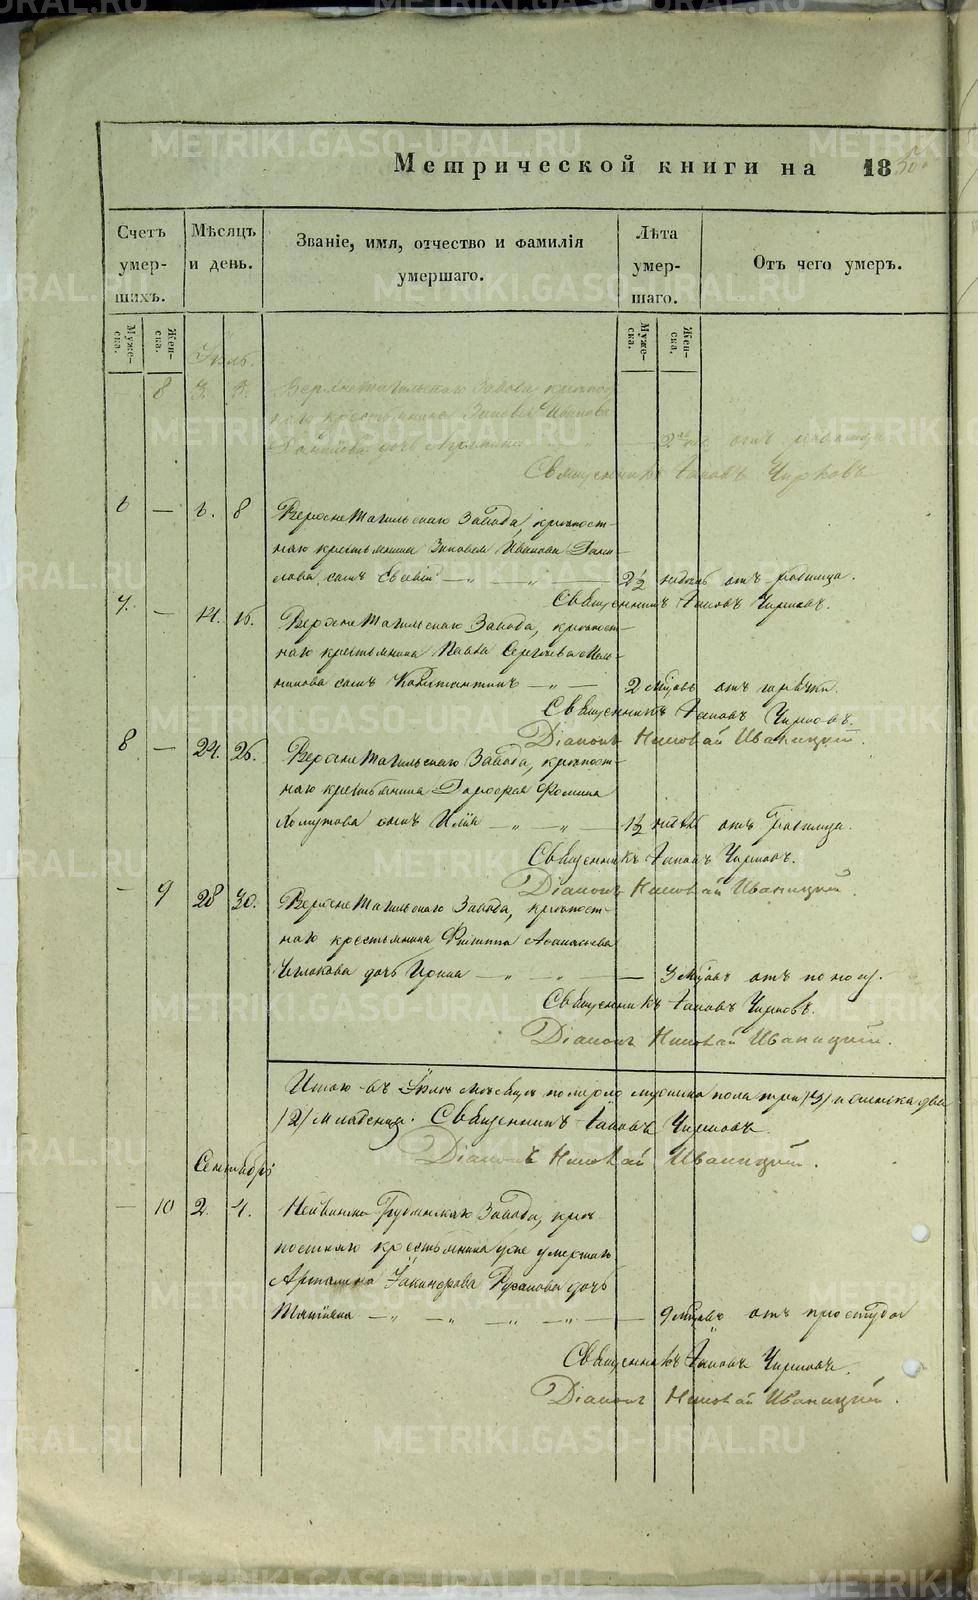 Метрической книги на 18
Счетъ умер- шихъ.
Мѣсяцъ и день.
Званіе, имя, отчество и фамилія умершаго.
Лѣта умер- шаго.
Отъ чего умеръ.
Муже- ска.
Жен- ска.
Муже- ска.
Жен- ска.
Іюль.
8 3.
Верхнетагильскаго завода, крѣпост-
наго крестьянина Зиновья Иванова
дочь
отъ родимца
Священникъ Іаковъ Чирковъ
6 — 6. 8
Верхнетагильскаго Завода, крѣпост-
наго крестьянина Зиновья Иванова
сынъ — „ — „ — 2½ недѣль отъ родимца.
Священникъ Іаковъ Чирковъ.
7. — 14. 16.
Верхнетагильскаго Завода, крѣпост-
наго крестьянина Павла Сергѣева Мель-
никова сынъ Константинъ — „ — 2 мѣсяцъ отъ горячки.
Священникъ Іаковъ Чирковъ.
Діаконъ Николай Иваницкій.
8 — 24. 26.
Верхнетагильскаго Завода, крѣпост-
наго крестьянина Дорофея Фомина
Хомутова сынъ Илія — „ — „ — 1½ недѣль отъ родимца.
Священникъ Іаковъ Чирковъ.
Діаконъ Николай Иваницкій.
— 9 28 30.
Верхнетагильскаго Завода, крѣпост-
наго крестьянина Филиппа Аѳанасьева
дочь — „ — „ — 3 мѣсяцъ отъ поносу.
Священникъ Іаковъ Чирковъ.
Діаконъ Николай Иваницкій.
Итого въ Іюлѣ мѣсяцѣ померло мужеска пола три /3/ и женска два
/2/ младенца. Священникъ Іаковъ Чирковъ.
Діаконъ Николай Иваницкій.
Сентябрь
— 10 2. 4.
Нейвинско Рудянскаго Завода, крѣ-
постнаго крестьянина уже умершаго
Русанова дочь
Татіяна — „ — „ — „ — „ — 9 мѣсяцъ отъ простуды
Священникъ Іаковъ Чирковъ.
Діаконъ Николай Иваницкій.
METRIKI.GASO-URAL.RU